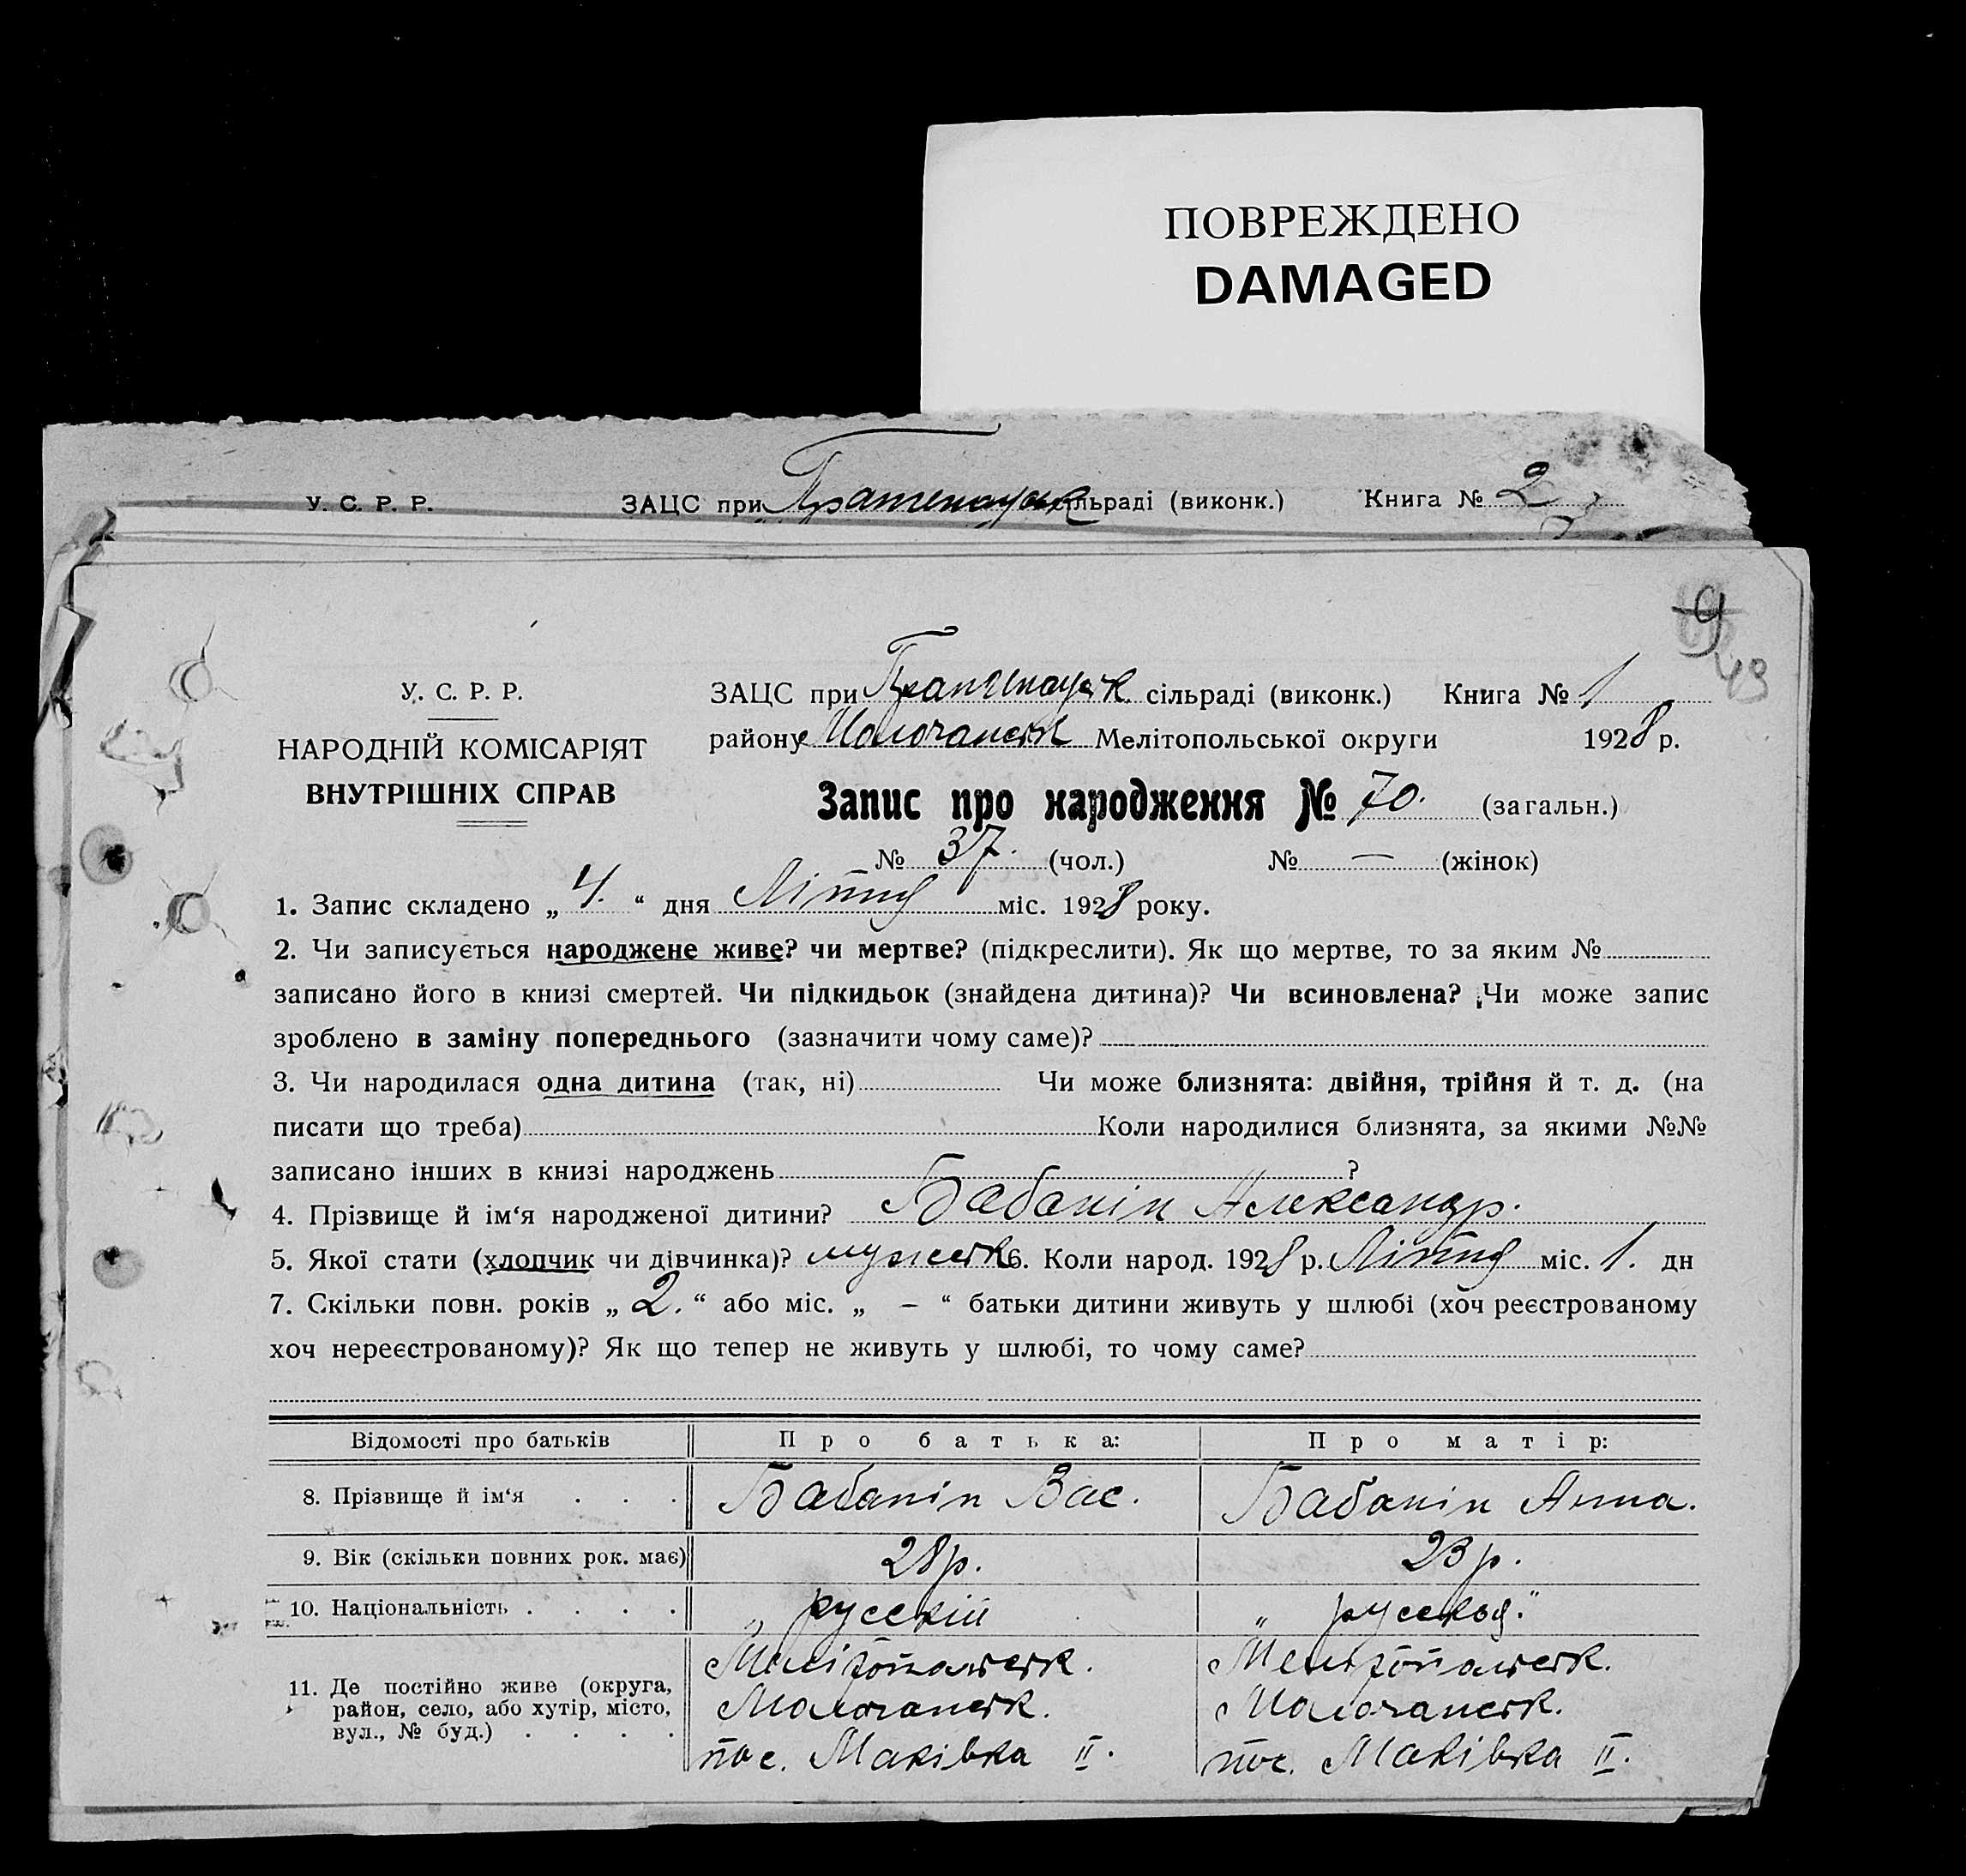 ПОВРЕЖДЕНО
DAMAGED
У. С. Р. Р. ЗАЦС при сільраді (виконк.) Книга № 2
9
43
У. С. Р. Р.
НАРОДНІЙ КОМІСАРІЯТ
ВНУТРІШНІХ СПРАВ
ЗАЦС при сільраді (виконк.) Книга № 1
району Молочанськ Мелітопольської округи 1928 р.
Запис про народження № 70. (загальн.)
№ 37. (чол.) № — (жінок)
1. Запис складено „ 4. “ дня Літня міс. 1928 року.
2. Чи записується народжене живе? чи мертве? (підкреслити). Як що мертве, то за яким №
записано його в книзі смертей. Чи підкидьок (знайдена дитина)? Чи всиновлена? Чи може запис
зроблено в заміну попереднього (зазначити чому саме)?
3. Чи народилася одна дитина (так, ні) Чи може близнята: двійня, трійня й т. д. (на
писати що треба) Коли народилися близнята, за якими №№
записано інших в книзі народжень ?
4. Прізвище й ім‘я народженої дитини? Бабанін Александр.
5. Якої стати (хлопчик чи дівчинка)? мужеск 6. Коли народ. 1928 р. Літня міс. 1. дн
7. Скільки повн. років „ 2. “ або міс. „ – “ батьки дитини живуть у шлюбі (хоч реєстрованому
хоч нереєстрованому)? Як що тепер не живуть у шлюбі, то чому саме?
Відомості про батьків Про батька: Про матір:
8. Прізвище й ім‘я . . . Бабанін Вас. Бабанін Анна.
9. Вік (скільки повних рок. має) 28 р. 23 р.
10. Національність . . . . „ русскій „ русская.“
11. Де постійно живе (округа, район, село, або хутір, місто, вул., № буд.) . . . .
Мелітопольськ. Мелітопольськ.
Молочанськ. Молочанськ.
пос. Маківка II. пос. Маківка II.